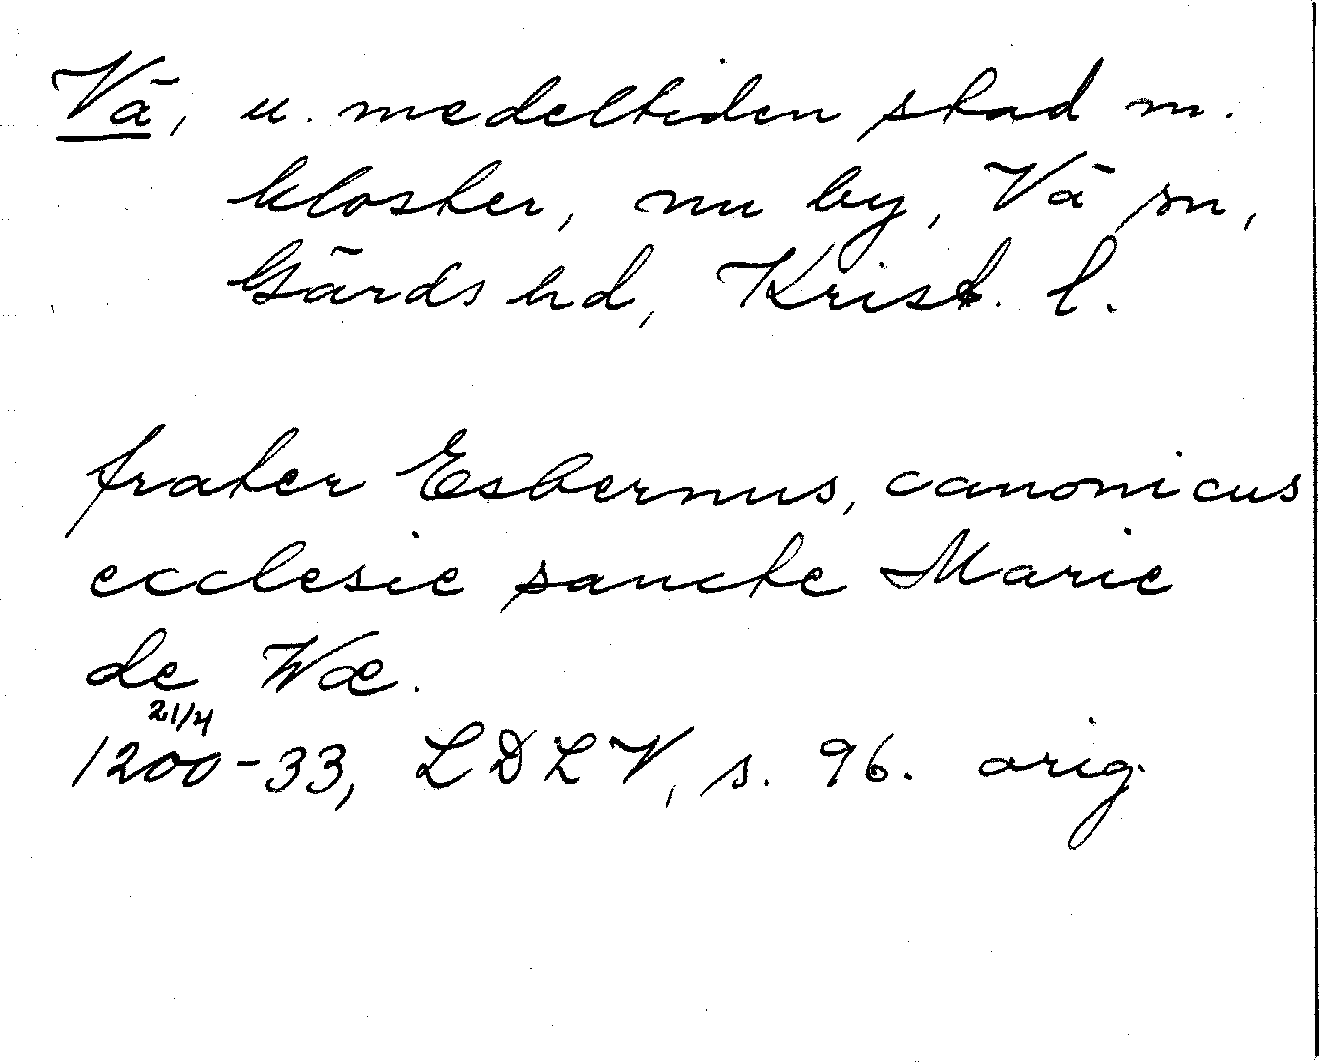 Vä, u. medeltiden stad m.
kloster, nu by, Vä sn,
Gärds hd, Krist. l.
frater Esbernus, canonicus
ecclesie sancte Marie
de Wæ.
21/4
1200-33, LDLV, s. 96. orig.